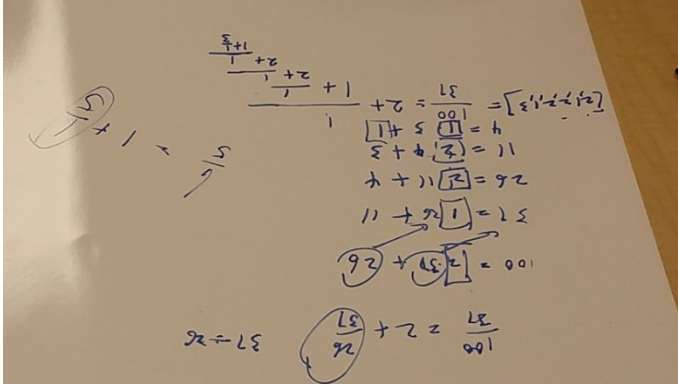 100/37 = 2 + 26/37    37 - 26
100 = 2·37 + 26
37 = 1 26 + 11
26 = 2 11 + 4
11 = 2 4 + 3
4 = 1 3 + 1
[2,1,2,2,1,3] = 100/37 = 2 + 1/(1 + 1/(2 + 1/(2 + 1/(1 + 1/3))))
6/5 = 1 + 1/5